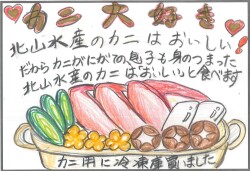 カニ大好き
北山水産のカニはおいしい!
だからカニがにが手の息子も身のつまった
北山水産のカニは「おいしい」と食べます
カニ用に冷凍庫買いました